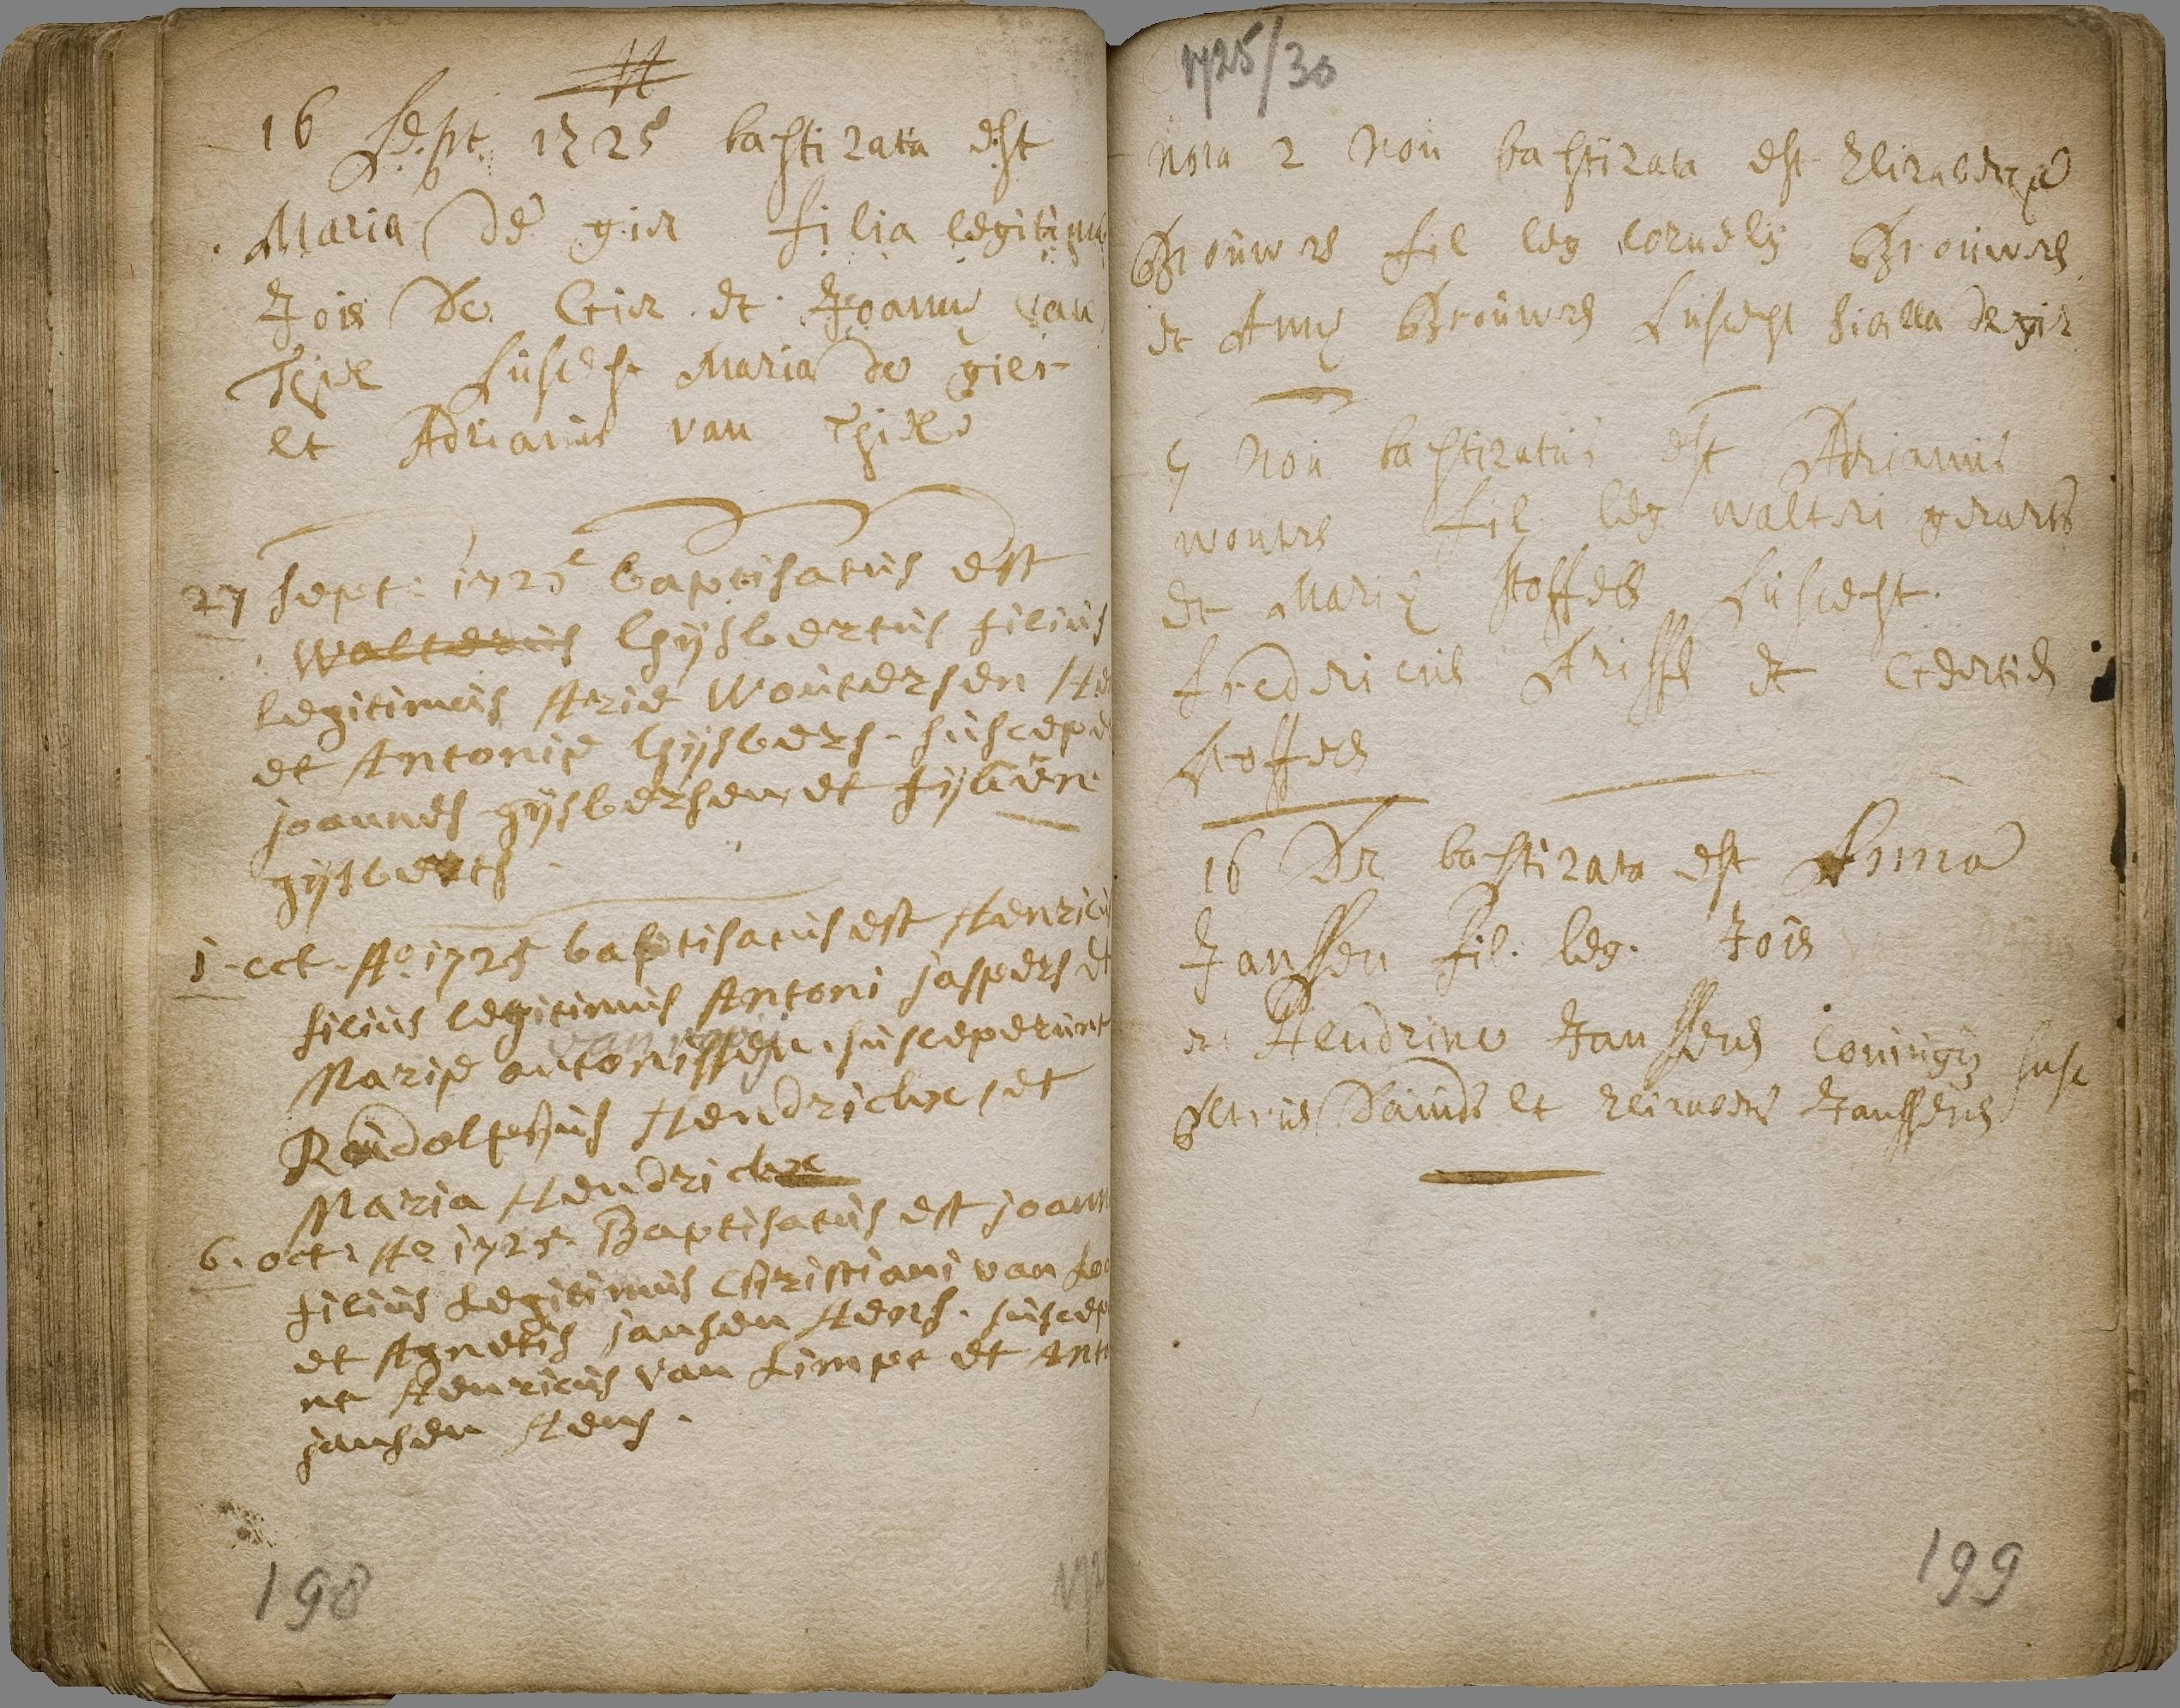 16 Sept. 1725 baptizata est
Maria de gier filia legitima
Jois De Gier et Joannę van
Thiel suscept Maria de gier
et Adrianus van Thiel
27 sept: 1725 baptisatus est
Walterus Ghijsbertus filius
legitimus Arie Woutersen
et Antonie Ghijsbers. suscepe
joannes gijsbersen et
gijsberts
1 oct. Aº 1725 baptisatus est Henricu
filius legitimus Antoni jaspers et
Marie antonissen. susceperunt
Rudolphus Hendrickx, et
Maria Hendrickx
6. oct. Aº 1725. Baptisatus est joann
filius Legitimus Christiani van
et Agnetis jansen Hens. suscep
nt Henricus van Limpt et Anto
jansen Hens.
198
1725/30
2 Nov baptizata est
Brouwers fil leg cornelij Brouwers
et Annę Brouwers suscept de gier
Nov baptizatus est Adrianus
wouters fil leg walteri gerarts
et Marię stoffels suscept.
fredericus et
stoffels
16 Br baptizata est Anna
Janssen fil. leg. Jois
et Hendrinę Janssens coniugū susc
petrus et Janssens
199